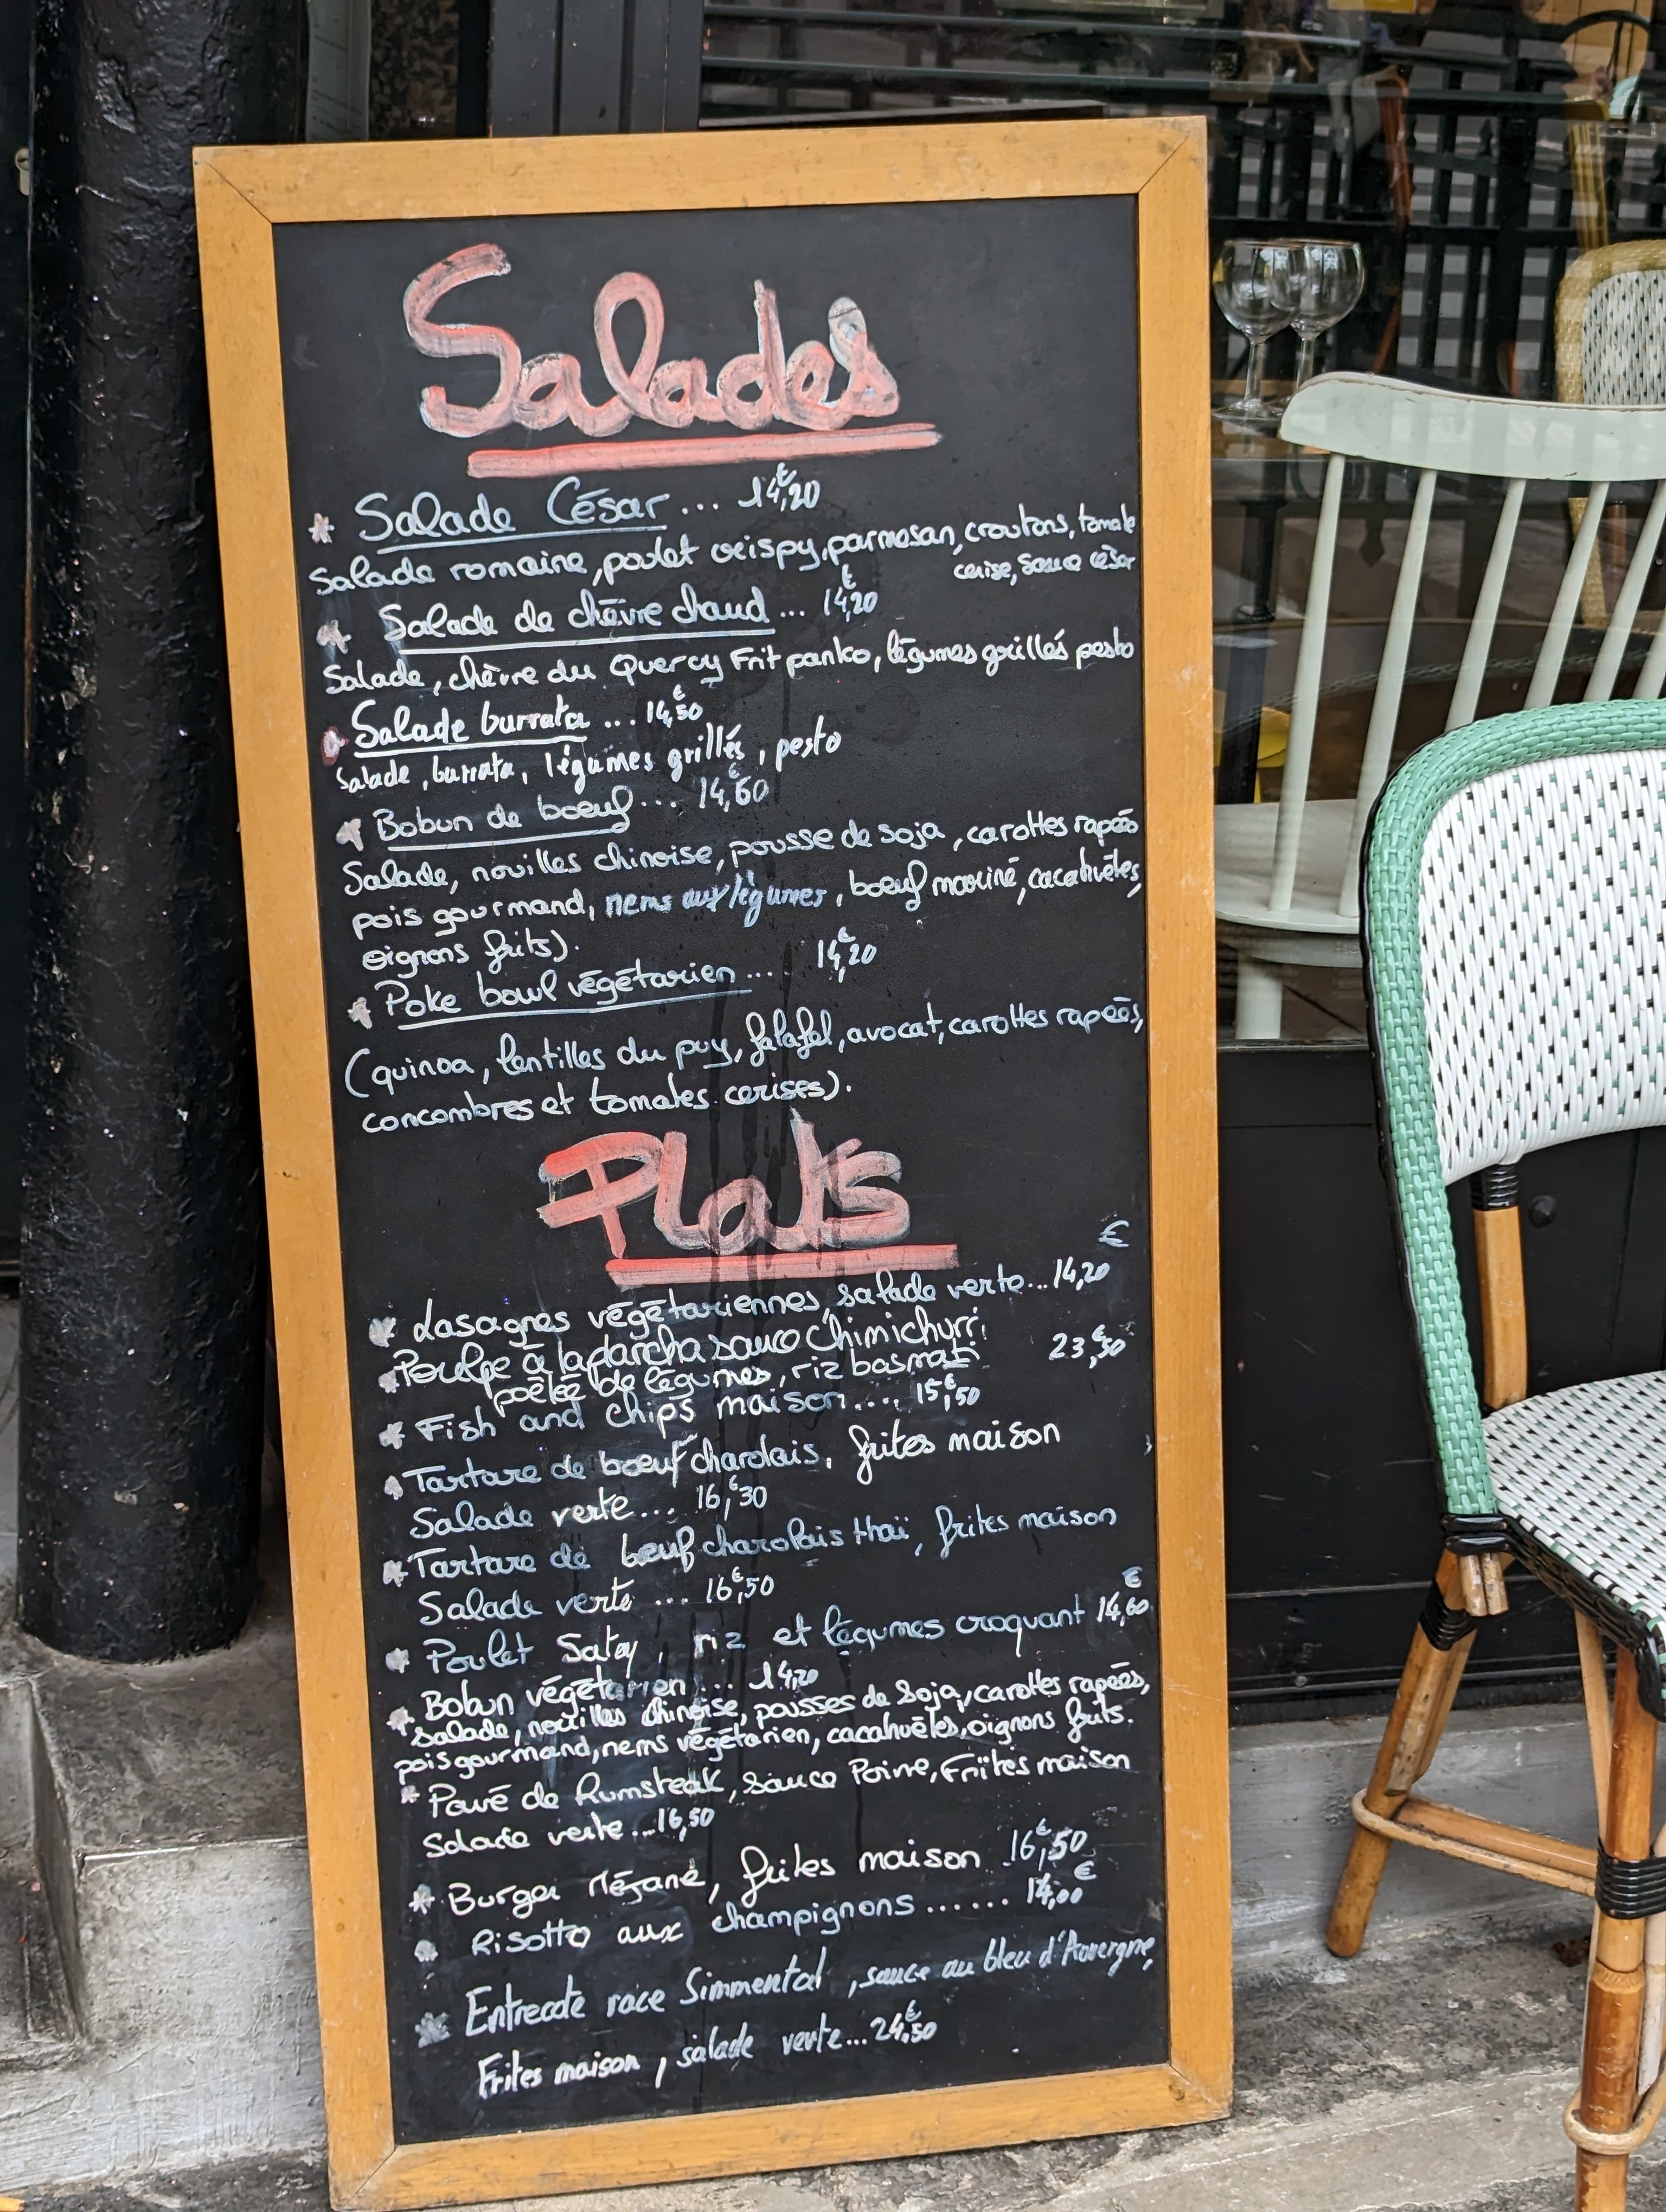 Salades
* Salade César ... 14,20€
Salade romaine, poulet crispy, parmesan, croutons, tomate
cerise, sauce césar
* Salade de chèvre chaud ... 14,20€
Salade, chèvre du Quercy Frit panko, légumes grillés pesto
* Salade burrata ... 14,50€
Salade, burrata, légumes grillés, pesto
* Bobun de boeuf ... 14,60€
Salade, nouilles chinoise, pousse de soja, carottes rapées
pois gourmand, nems aux légumes, boeuf mariné, cacahuètes,
oignons frits).
* Poke bowl végétarien ... 14,20€
(quinoa, lentilles du puy, falafel, avocat, carottes rapées,
concombres et tomates cerises).
Plats
* Lasagnes végétariennes, salade verte ... 14,20€
* Poulpe à la plancha sauce Chimichurri,
poêlée de légumes, riz basmati 23,50€
* Fish and chips maison .... 15,50€
* Tartare de boeuf charolais, frites maison
Salade verte ... 16,30€
* Tartare de boeuf charolais thaï, frites maison
Salade verte ... 16,50€
* Poulet Satay, riz et légumes croquant 14,60€
* Bobun végétarien ... 14,20
Salade, nouilles chinoise, pousses de Soja, carottes rapées,
pois gourmand, nems végétarien, cacahuètes, oignons frits.
* Pavé de Rumsteak, sauce Poivre, Frites maison
Salade verte ... 16,50
* Burger Mézané, frites maison 16,50€
* Risotto aux champignons ...... 14,00€
* Entrecote race Simmental, sauce au bleu d'Auvergne,
Frites maison, salade verte ... 24,50€